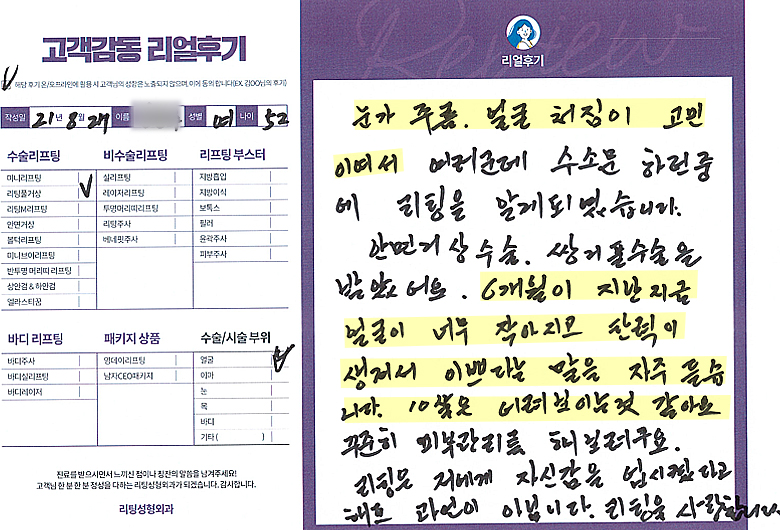 고객감동 리얼후기
해당 후기 온/오프라인에 활용 시 고객님의 성함은 노출되지 않으며, 이에 동의 합니다(EX. 김OO님의 후기)
작성일 21년 8월 27 이름 성별 여 나이 52
수술리프팅
미니리프팅
리팅풀거상
리팅M리프팅
안면거상
볼턱리프팅
미니브이리프팅
반투명 머리띠 리프팅
상안검 & 하안검
엘라스티꿈
비수술리프팅
실리프팅
레이저리프팅
투명머리띠리프팅
리팅주사
베네핏주사
리프팅 부스터
지방흡입
지방이식
보톡스
필러
윤곽주사
피부주사
바디 리프팅
바디주사
바디실리프팅
바디레이저
패키지 상품
원데이리프팅
남자CEO패키지
수술/시술 부위
얼굴
이마
눈
목
바디
기타 ( )
진료를 받으시면서 느끼신 점이나 칭찬의 말씀을 남겨주세요!
고객님 한 분 한 분 정성을 다하는 리팅성형외과가 되겠습니다. 감사합니다.
리팅성형외과
Review
리얼후기
눈가 주름. 얼굴 처짐이 고민
이여서 여러군데 수소문 하던중
에 리팅을 알게되었습니다.
안면거상수술. 쌍거풀수술을
받았어요. 6개월이 지난지금
얼굴이 너무 작아지고 탄력이
생겨서 이쁘다는 말을 자주 듣습
니다. 10살은 어려보이는것 같아요
꾸준히 피부관리를 해 려구요.
리팅은 저에게 자신감을 입시켰다고
해도 과언이 아닙니다. 리팅을 사랑합니다.